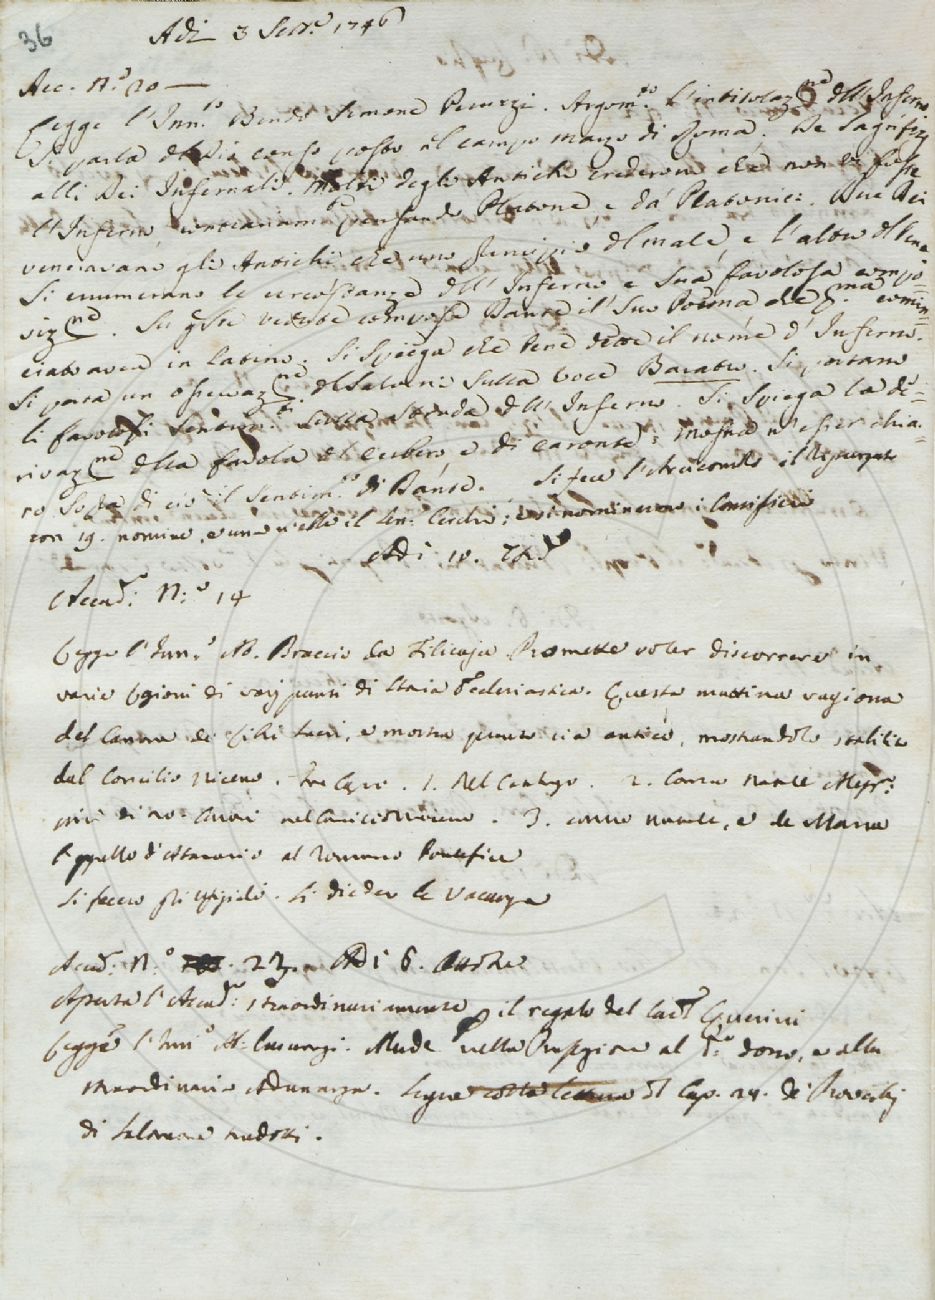 36
Adì 3 Settr.e 1746
Acc. N.o 20 —
Legge l'Inn.to Bendt Simone Peruzzi. Argom.to l'intitolaz.ne dell'Inferno
Si parla del Dis censo posto al campo marzo di Roma. De Sagrifizj
alli Dei Infernali. Molti degli Antichi crederono che non vi fosse
l'Inferno, contrariam.te pensando Platone, e da' Platonici. Due Dei
veneravano gli Antichi che uno Principio del male, e l'altro del bene
Si enumerano le circostanze dell'Inferno e sua favolosa compo-
siz.ne. Su q.ste vedute compose Dante il suo Poema che p.ma comin-
ciato avea in latino. Si spiega che bene dette il nome d'Inferno.
Si porta un osservaz.ne del Salvini sulla voce Baratro. Si portano
li favolosi sentim.ti sulla strada dell'Inferno. Si spiega la de-
rivaz.ne della favola del cerbero e di caronte; mostra n'esser chia-
ro sopra di ciò il sentim.to di Dante. Si fece l'Arciconsolo il Repurgato
con 19. nomine, e uno n'ebbe il Sen. Cerchi; e si nominarono i Consiglieri
Adi 10. 7bre
Accad.a N.o 14
Legge l'Inn.o Ab. Braccio da Filicaja Promette voler discorrere in
varie Lezioni di varj punti di Storia Ecclesiastica. Questa mattina ragiona
del Canone de' Libri Sacri, e mostra quanto sia antico, mostrandolo stabilito
dal Concilio Niceno. Tre Capi. 1. Nel Cartago. 2. Contro Natale Aless:
3. contro Natale, e de Marca
l'appello d'Atanasio al Romano Pontefice
Si fecero gli Ufizj. Si diedero le Vacanze
Accad. N.o 23. Adì 6. Ottobre
Aperta l'Accad.a straordinariamente p il regalo del Card. Querini
Legge l'Inn.o Ab. Allude nella Prefazione al d.o dono, e alla
straordinaria Adunanza. Segue colla lettura del Cap. 24. de' Proverbj
di Salomone tradotti.